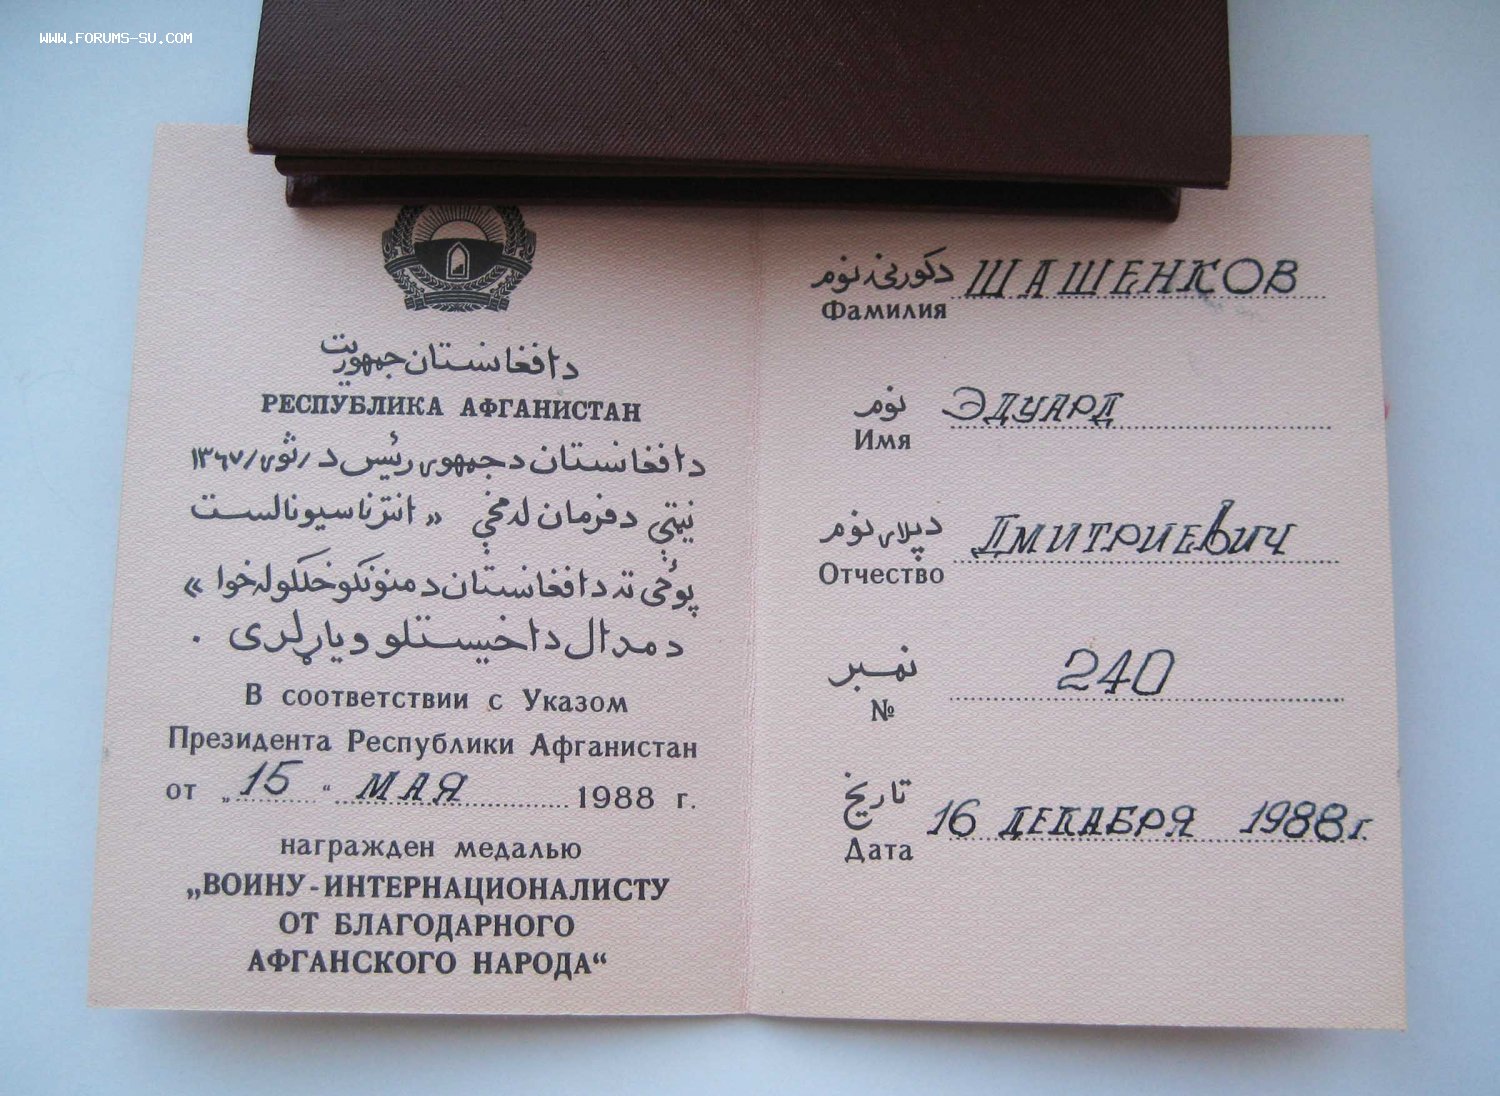 WWW.FORUMS-SU.COM
د افغانستان جمهوریت
РЕСПУБЛИКА АФГАНИСТАН
د افغانستان د جمهوری رئیس د /ثوی/ ۱۳۶۷
نیټې د فرمان له مخې « انترناسیونالست
پوځی ته د افغانستان د منونکو خلکو له خوا »
د مدال د اخیستلو ویاړ لری .
В соответствии с Указом
Президента Республики Афганистан
от „15“ МАЯ 1988 г.
награжден медалью
„ВОИНУ-ИНТЕРНАЦИОНАЛИСТУ
ОТ БЛАГОДАРНОГО
АФГАНСКОГО НАРОДА“
د کورنۍ نوم ШАШЕНКОВ
Фамилия
نوم ЭДУАРД
Имя
د پلار نوم ДМИТРИЕВИЧ
Отчество
نمبر 240
№
تاریخ 16 ДЕКАБРЯ 1988 г.
Дата